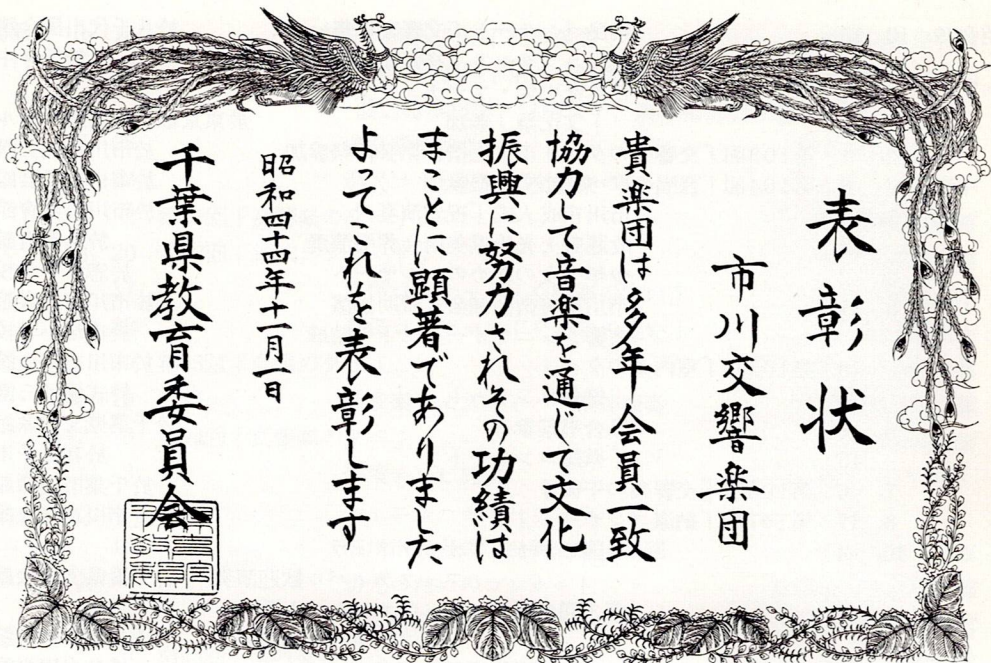 表彰状
市川交響楽団
貴楽団は多年会員一致
協力して音楽を通じて文化
振興に努力されその功績は
まことに顕著でありました
よってこれを表彰します
昭和四十四年十一月一日
千葉県教育委員会